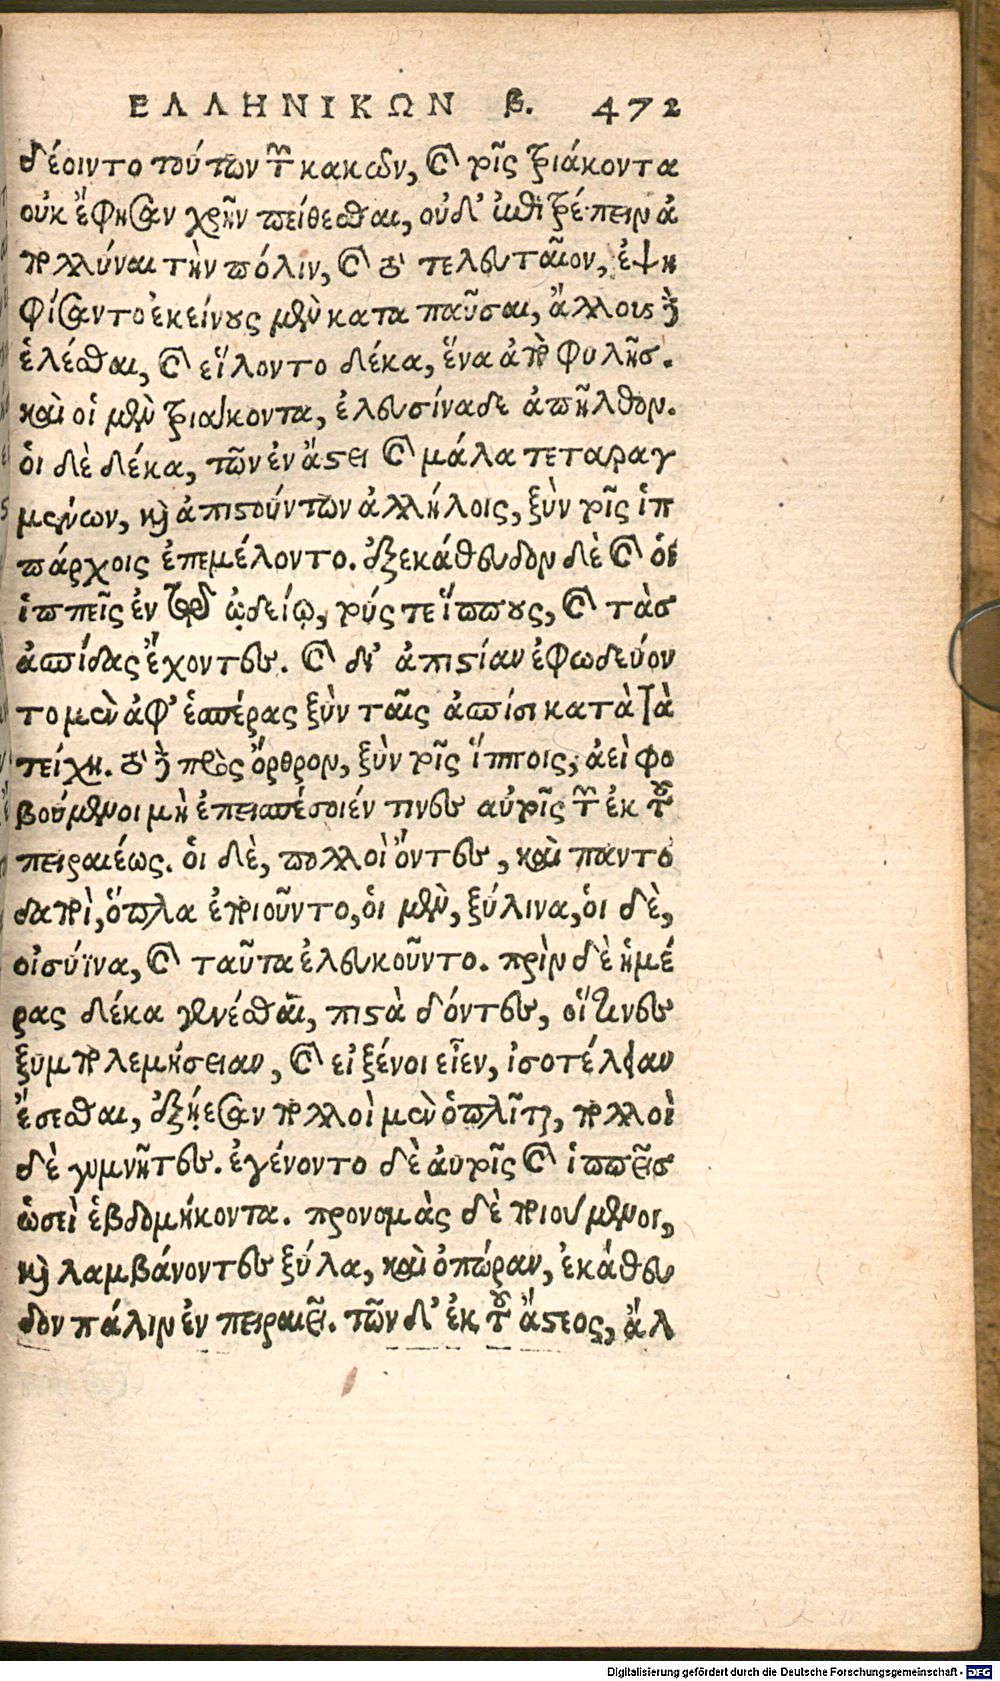 ΕΛΛΗΝΙΚΩΝ β. 472
δέοιντο τούτων τῶν κακῶν, καὶ τοῖς τριάκοντα
οὐκ ἔφησαν χρῆν πείθεσθαι, οὐδ' ἐπιτρέπειν ἀ
πολλύναι τὴν πόλιν, καὶ τὸ τελευταῖον, ἐψη
φίσαντο ἐκείνους μὲν καταπαῦσαι, ἄλλους δὲ
ἑλέσθαι, καὶ εἵλοντο δέκα, ἕνα ἀπὸ φυλῆς.
καὶ οἱ μὲν τριάκοντα, ἐλευσίναδε ἀπῆλθον.
οἱ δὲ δέκα, τῶν ἐν ἄστει καὶ μάλα τεταραγ
μένων, καὶ ἀπιστούντων ἀλλήλοις, ξὺν τοῖς ἱπ
πάρχοις ἐπεμέλοντο. ἐξεκάθευδον δὲ καὶ οἱ
ἱππεῖς ἐν τῷ ᾠδείῳ, τούς τε ἵππους, καὶ τὰς
ἀσπίδας ἔχοντες. καὶ δι' ἀπιστίαν ἐφωδεύον
το μὲν ἀφ' ἑσπέρας ξὺν ταῖς ἀσπίσι κατὰ τὰ
τείχη. τὸ δὲ πρὸς ὄρθρον, ξὺν τοῖς ἵπποις, ἀεὶ φο
βούμενοι μὴ ἐπεισπέσοιέν τινες αὐτοῖς τῶν ἐκ τοῦ
πειραιέως. οἱ δὲ, πολλοὶ ὄντες, καὶ παντο
δαποὶ, ὅπλα ἐποιοῦντο, οἱ μὲν, ξύλινα, οἱ δὲ,
οἰσύϊνα, καὶ ταῦτα ἐλευκοῦντο. πρὶν δὲ ἡμέ
ρας δέκα γενέσθαι, πιστὰ δόντες, οἵτινες
ξυμπολεμήσειαν, καὶ εἰ ξένοι εἶεν, ἰσοτέλειαν
ἔσεσθαι, ἐξῄεσαν πολλοὶ μὲν ὁπλῖται, πολλοὶ
δὲ γυμνῆτες. ἐγένοντο δὲ αὐτοῖς καὶ ἱππεῖς
ὡσεὶ ἑβδομήκοντα. προνομὰς δὲ ποιούμενοι,
καὶ λαμβάνοντες ξύλα, καὶ ὀπώραν, ἐκάθευ
δον πάλιν ἐν πειραιεῖ. τῶν δ' ἐκ τοῦ ἄστεος, ἄλ
Digitalisierung gefördert durch die Deutsche Forschungsgemeinschaft - DFG